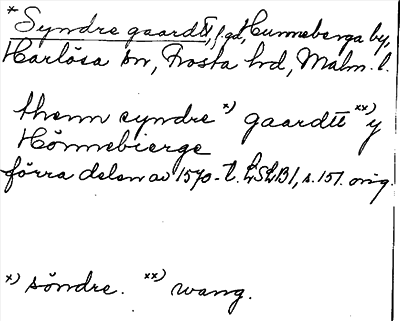 *Syndre gaardt, f.gd, Hunneberga by,
Harlösa sn, Frosta hd, Malm. l.
thenn syndre *) gaardtt **) y
Hönnebierge
förra delen av 1570-t. LSLB1, s. 151. orig.
*) söndre. **) wang.